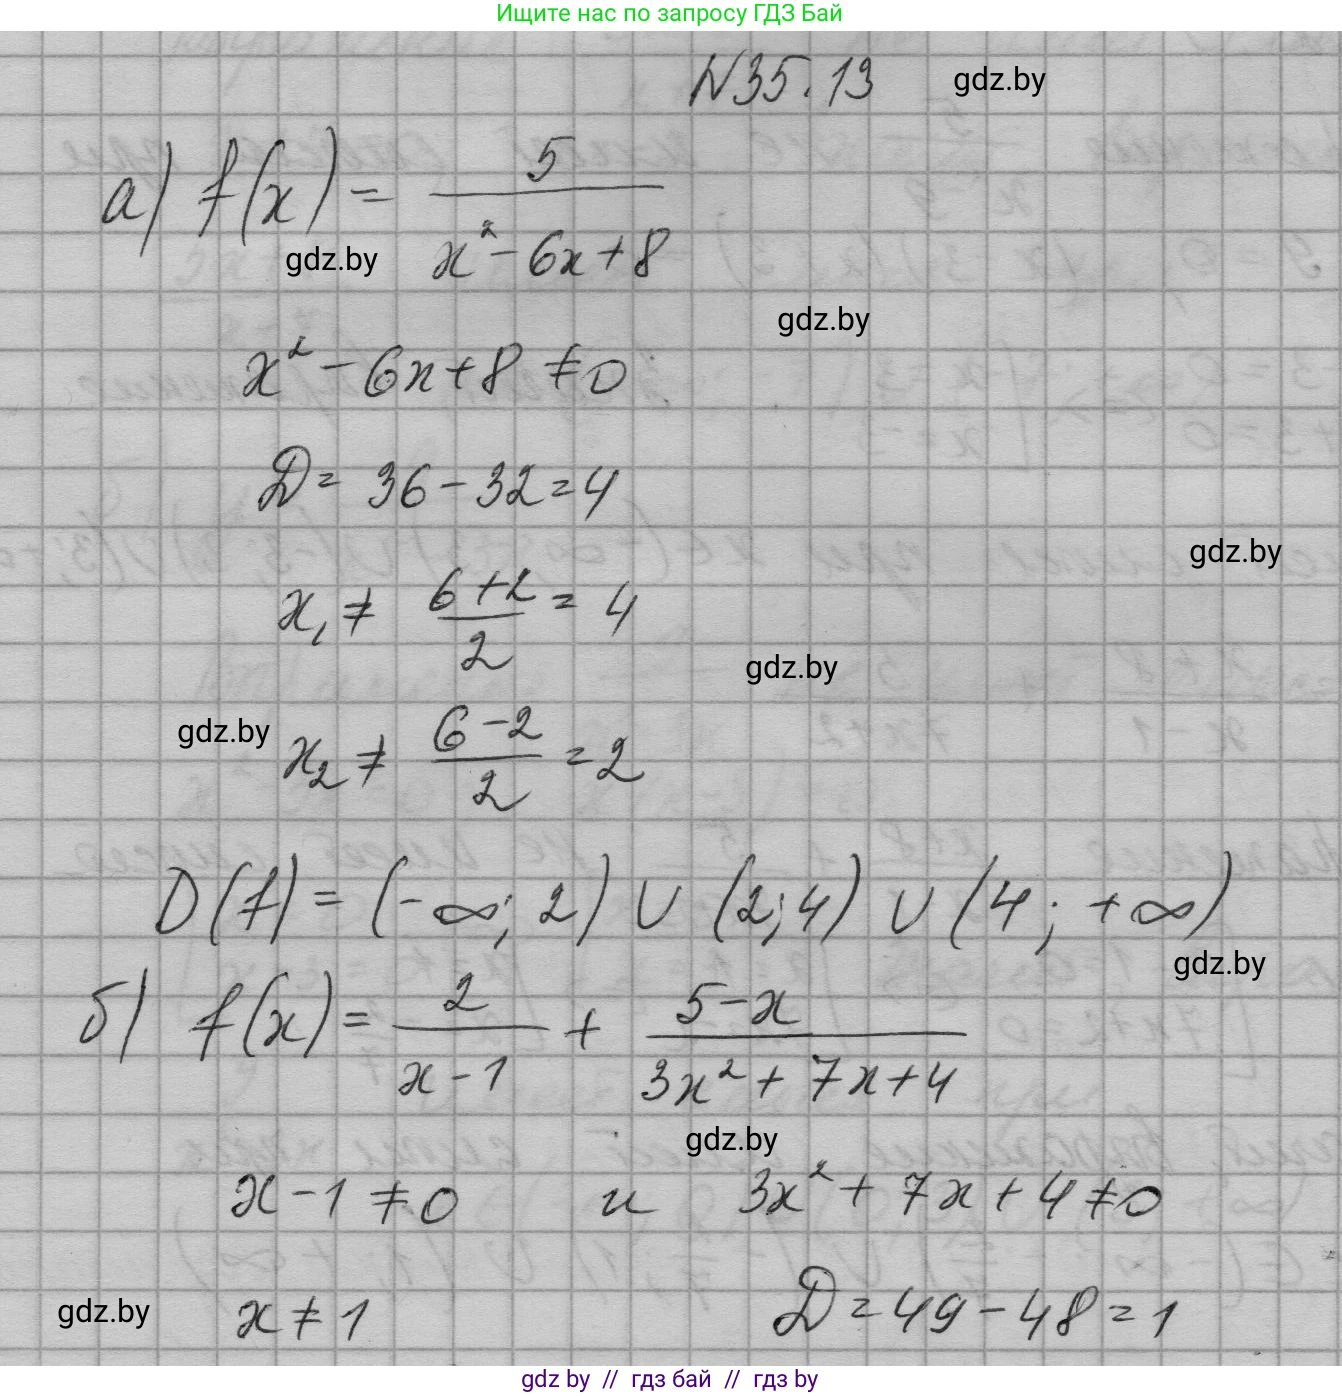 Ищите нас по запросу ГДЗ Бай
N35.13 gdz.by
а) f(x) = 5/(x² - 6x + 8)
gdz.by
gdz.by
x² - 6x + 8 ≠ 0
D = 36 - 32 = 4
gdz.by
x₁ ≠ (6 + 2)/2 = 4
gdz.by
gdz.by
x₂ ≠ (6 - 2)/2 = 2
D(f) = (-∞; 2) ∪ (2; 4) ∪ (4; +∞)
gdz.by
б) f(x) = 2/(x - 1) + (5 - x)/(3x² + 7x + 4)
gdz.by
x - 1 ≠ 0 и 3x² + 7x + 4 ≠ 0
gdz.by x ≠ 1 D = 49 - 48 = 1
gdz by // гдз бай // гдз by